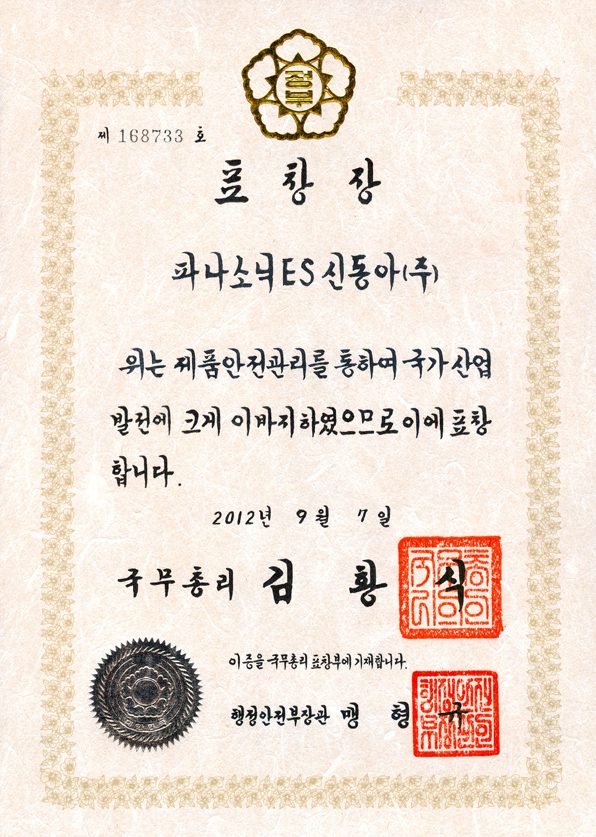 정부
제 168733 호
표 창 장
파나소닉ES신동아(주)
위는 제품안전관리를 통하여 국가산업
발전에 크게 이바지하였으므로 이에 표창
합니다.
2012년 9월 7일
국무총리 김 황 식
이 증을 국무총리 표창부에 기재합니다.
행정안전부장관 맹 형 규